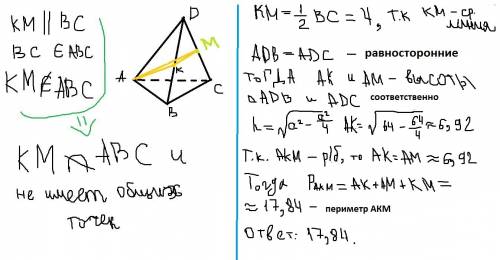 KM || BC
BC ∈ ABC
KM ∉ ABC
KM ABC и
не имеет общих
точек
D
M
K
A
C
B
KM = 1/2 BC = 4, т.к KM - ср.
линия
ADB = ADC - равносторонние
тогда AK и AM - высоты
ΔADB и ADC соответственно
h = √(a² - a²/4) AK = √(64 - 64/4) ≈ 6,92
т.к. AKM - р/б, то AK = AM ≈ 6,92
Тогда PAKM = AK + AM + KM =
≈ 17,84 - периметр AKM
Ответ: 17,84.